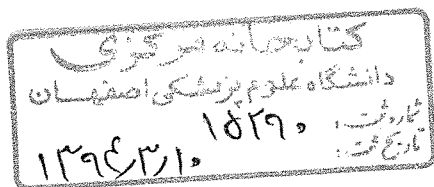 کتابخانه مرکزی
دانشگاه علوم پزشکی اصفهان
شماره ثبت: ۱۵۲۹۰
تاریخ ثبت: ۱۳۹۶/۳/۱۰